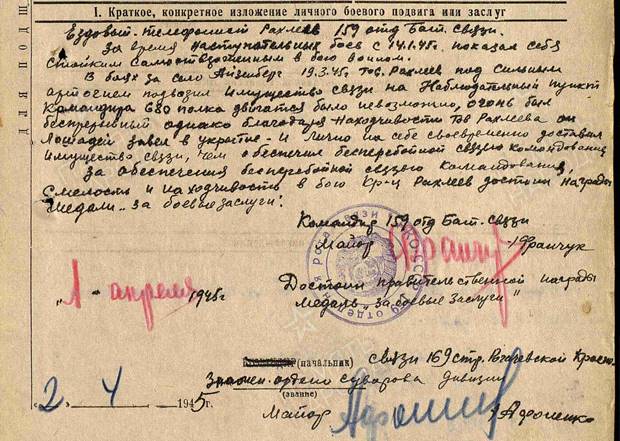 I. Краткое, конкретное изложение личного боевого подвига или заслуг
Ездовый-телефонист Рахлеев 159 отд. Бат. связи.
За время наступательных боев с 14.1.45г. показал себя
стойким самоотверженным в бою воином.
В боях за село Айзенберг 19.3.45г. тов. Рахлеев под сильным
артогнем подвозил имущество связи на Наблюдательный пункт
Командира 680 полка двигатся было невозможно, очень был
беспрерывный однако благодаря находчивости тов Рахлеева он
Лошадей завел в укрытие - и Лично на себе своевременно доставил
имущество связи, чем обеспечил бесперебойной связью командования
За обеспечения бесперебойной связью командования,
смелость и находчивость в бою Кр-ц Рахлеев достоин награды
медали „за боевые заслуги".
Командир 159 отд Бат. связи
Майор Франчук
"1" апреля 1945г
Достоин правительственной награды
медаль „за боевые заслуги"
(начальник) связи 169 стр. Рогачевской Красно-
Знамен. ордена Суворова дивизии
(звание)
"2" 4 1945г.
Майор Афоненко